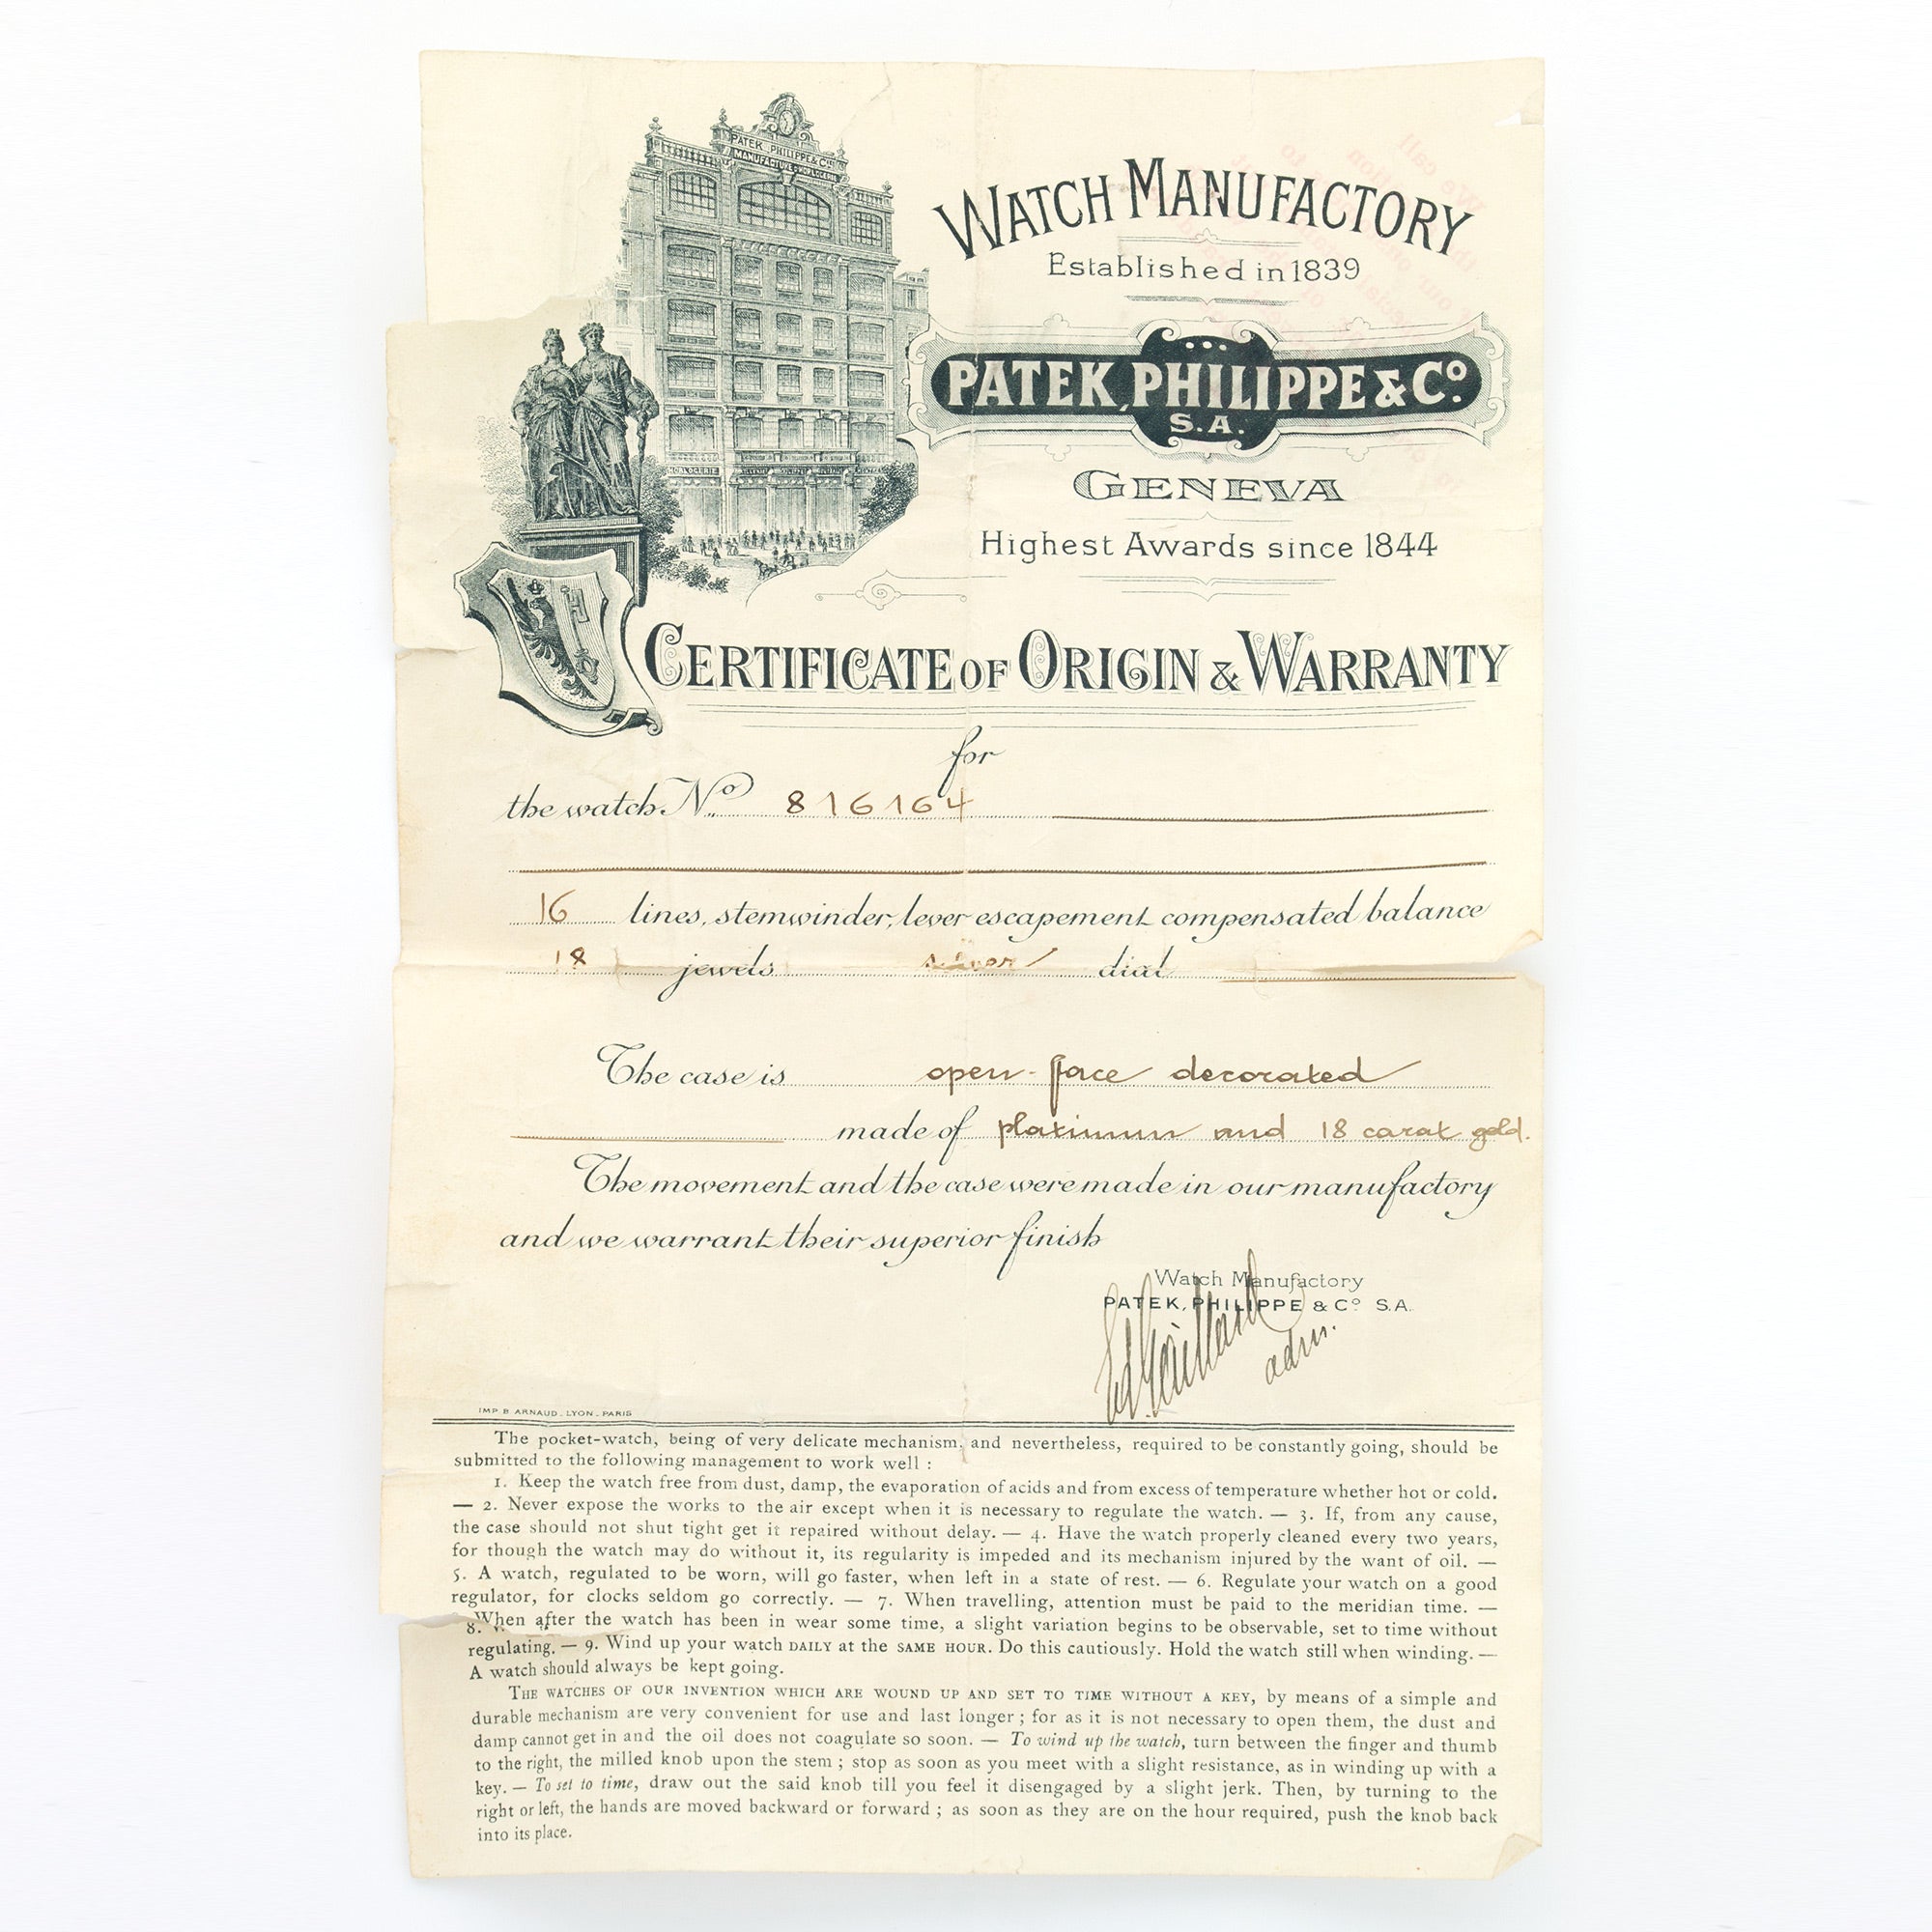 PATEK PHILIPPE & Cie
MANUFACTURE D'HORLOGERIE
HORLOGERIE
WATCH MANUFACTORY
Established in 1839
PATEK, PHILIPPE & Cº.
S.A.
GENEVA
Highest Awards since 1844
CERTIFICATE OF ORIGIN & WARRANTY
for
the watch Nº 816164
16 lines, stemwinder, lever escapement compensated balance
18 jewels silver dial
The case is open-face decorated
made of platinum and 18 carat gold.
The movement and the case were made in our manufactory
and we warrant their superior finish
Watch Manufactory
PATEK, PHILIPPE & Cº S.A.
adm.
IMP. B. ARNAUD _ LYON _ PARIS
The pocket-watch, being of very delicate mechanism, and nevertheless, required to be constantly going, should be
submitted to the following management to work well :
1. Keep the watch free from dust, damp, the evaporation of acids and from excess of temperature whether hot or cold.
— 2. Never expose the works to the air except when it is necessary to regulate the watch. — 3. If, from any cause,
the case should not shut tight get it repaired without delay. — 4. Have the watch properly cleaned every two years,
for though the watch may do without it, its regularity is impeded and its mechanism injured by the want of oil. —
5. A watch, regulated to be worn, will go faster, when left in a state of rest. — 6. Regulate your watch on a good
regulator, for clocks seldom go correctly. — 7. When travelling, attention must be paid to the meridian time. —
8. When after the watch has been in wear some time, a slight variation begins to be observable, set to time without
regulating. — 9. Wind up your watch DAILY at the SAME HOUR. Do this cautiously. Hold the watch still when winding. —
A watch should always be kept going.
THE WATCHES OF OUR INVENTION WHICH ARE WOUND UP AND SET TO TIME WITHOUT A KEY, by means of a simple and
durable mechanism are very convenient for use and last longer ; for as it is not necessary to open them, the dust and
damp cannot get in and the oil does not coagulate so soon. — To wind up the watch, turn between the finger and thumb
to the right, the milled knob upon the stem ; stop as soon as you meet with a slight resistance, as in winding up with a
key. — To set to time, draw out the said knob till you feel it disengaged by a slight jerk. Then, by turning to the
right or left, the hands are moved backward or forward ; as soon as they are on the hour required, push the knob back
into its place.